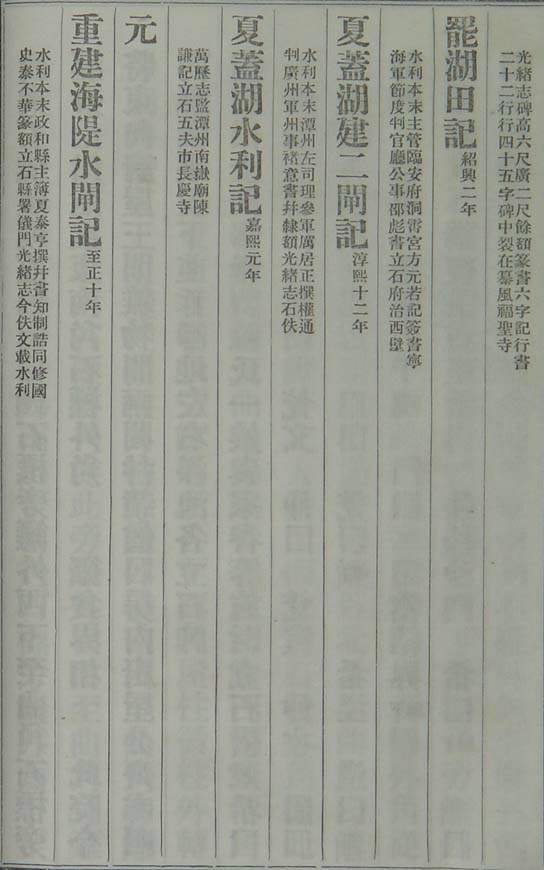 光緒志碑高六尺廣二尺餘額篆書六字記行書
二十二行行四十五字碑中裂在纂風福聖寺
罷湖田記紹興二年
水利本末主管臨安府洞霄宮方元若記簽書寧
海軍節度判官廳公事邵彪書立石府治西壁
夏蓋湖建二閘記淳熙十二年
水利本末潭州左司理參軍厲居正撰權通
判廣州軍州事褚意書幷隸額光緒志石佚
夏蓋湖水利記嘉熙元年
萬歷志監潭州南嶽廟陳
謙記立石五夫市長慶寺
元
重建海隄水閘記至正十年
水利本末政和縣主簿夏泰亨撰幷書知制誥同修國
史泰不華篆額立石縣署儀門光緒志今佚文載水利